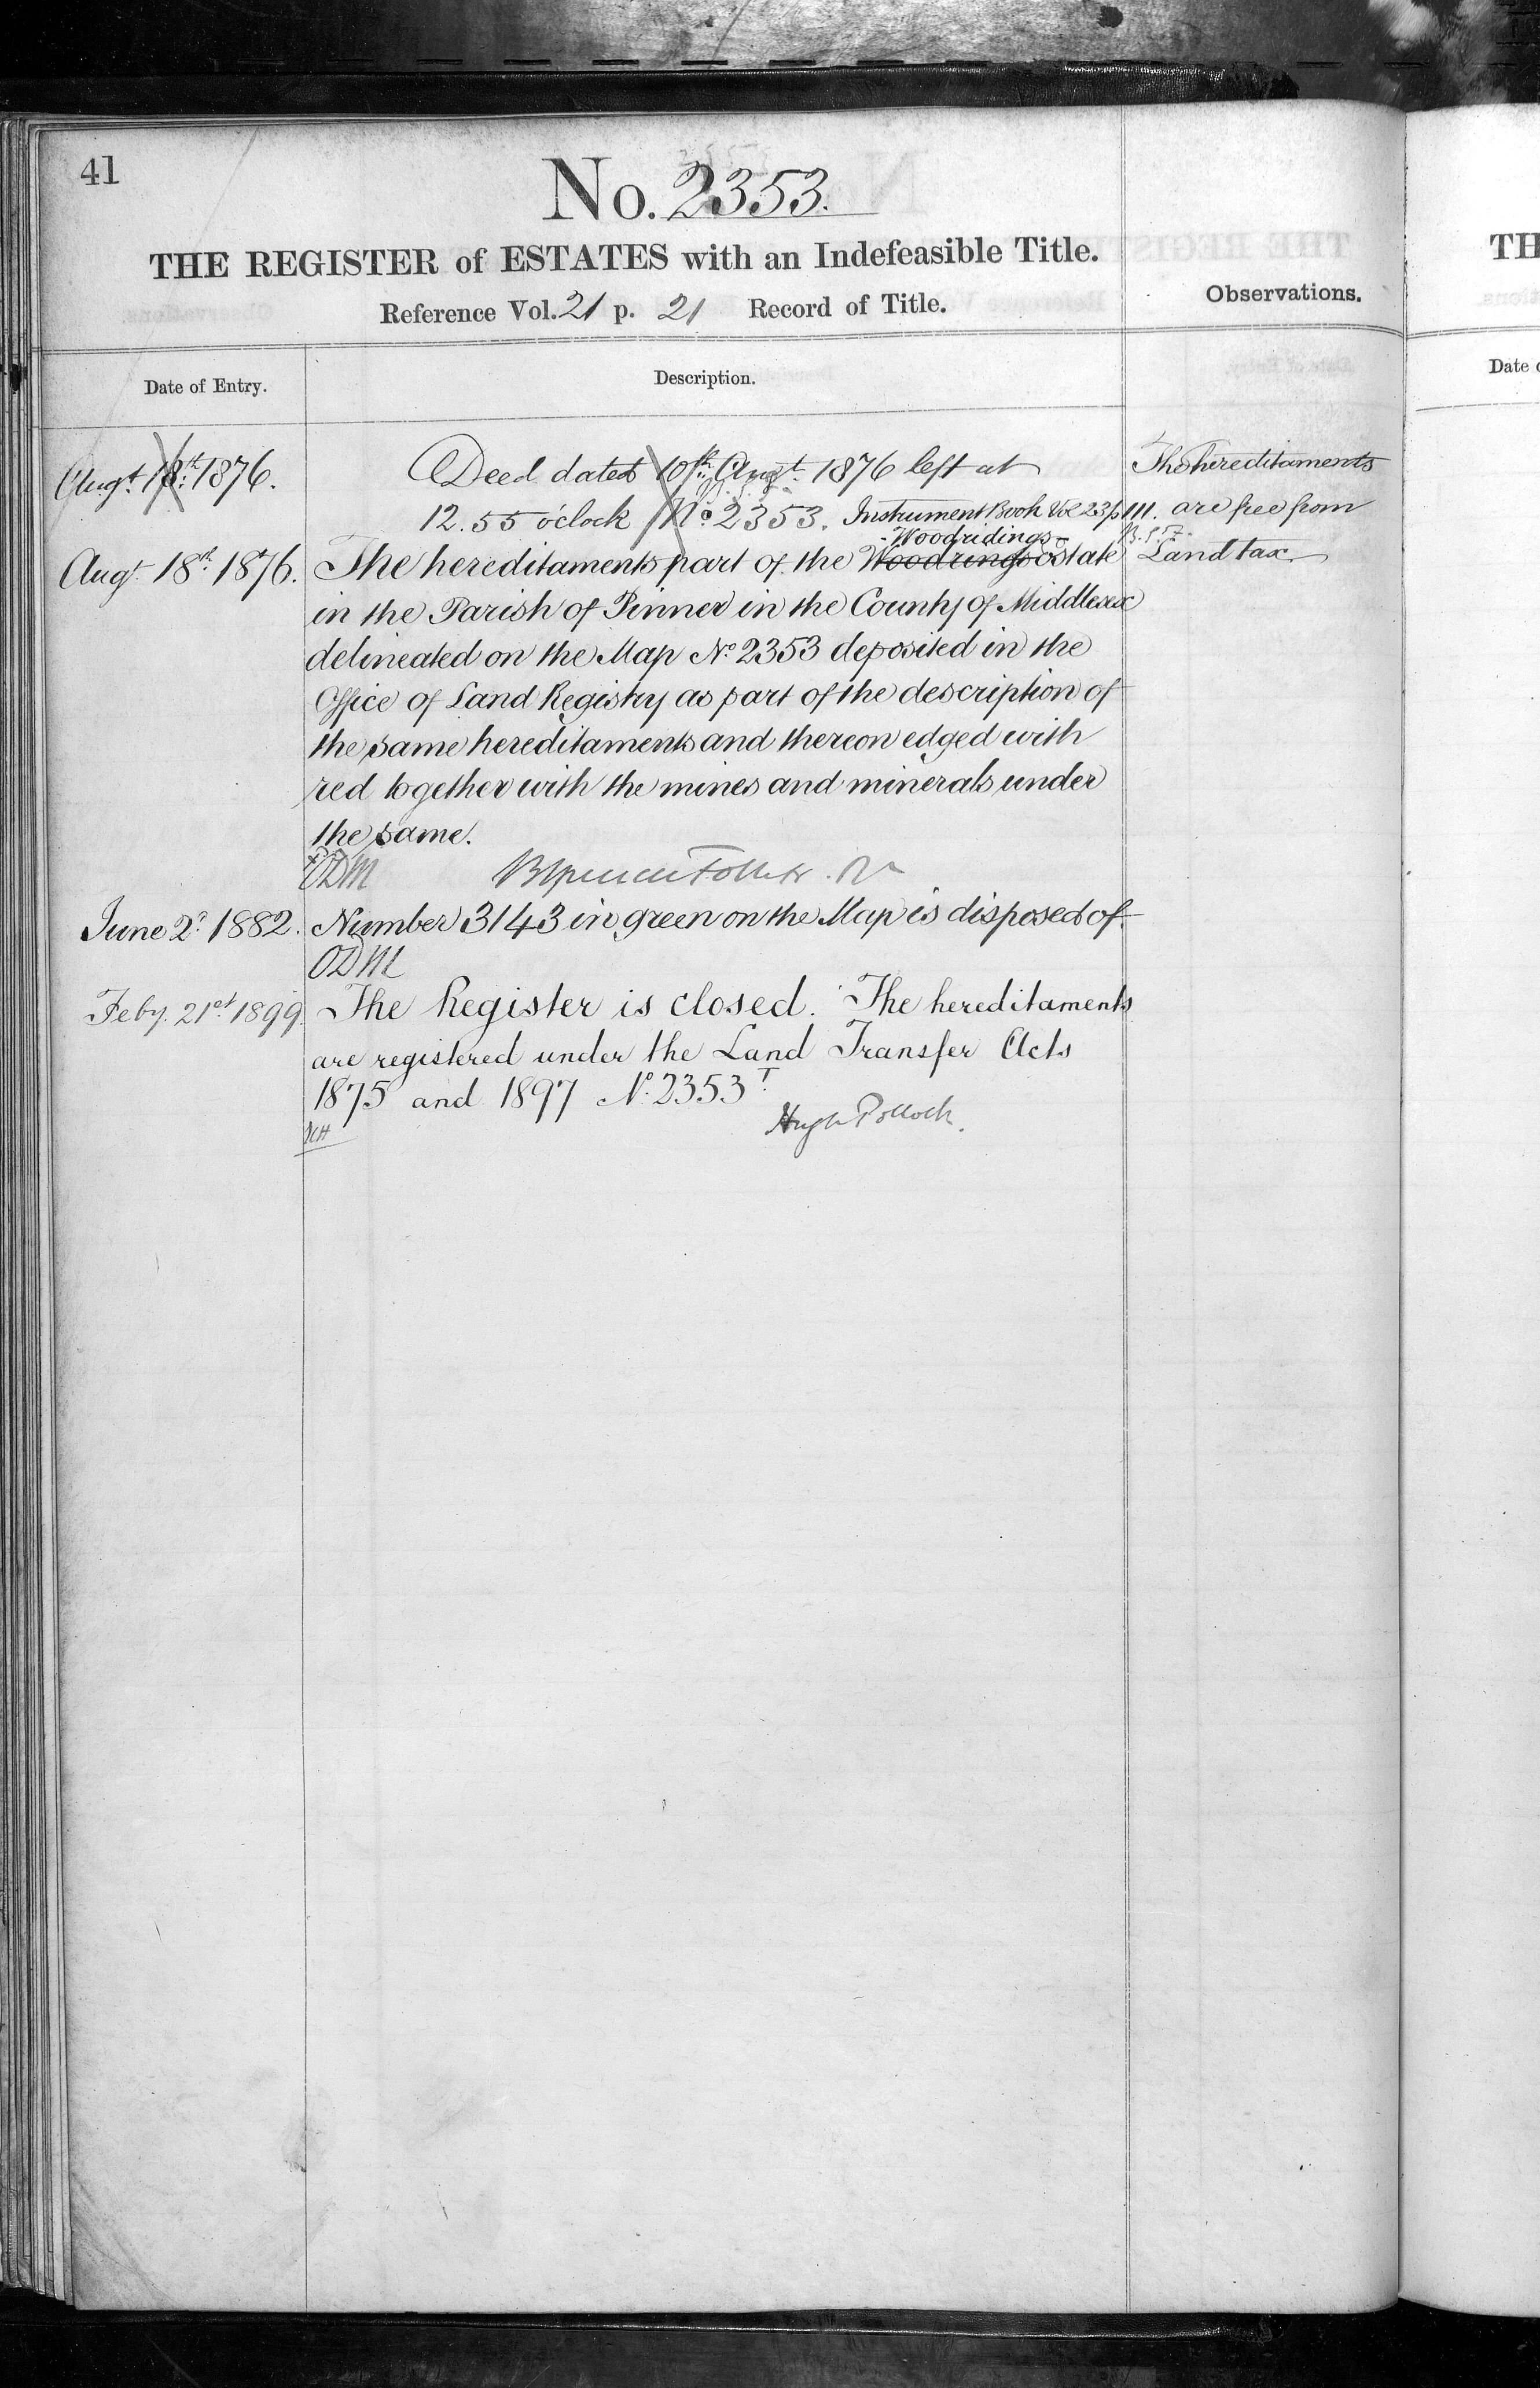 41
No. 2353.
THE REGISTER of ESTATES with an Indefeasible Title.
Reference Vol. 21 p. 21 Record of Title.
Observations.
Date of Entry.
Description.
Augt. 18th. 1876.
Deed dated 10th. Augt. 1876 left at
12.55 o'clock No 2353. Instrument Book Vol 23 p 111.
The hereditaments
are free from
B.S.F.
Land tax
Woodridings
Augt. 18th. 1876. The hereditaments part of the Woodrings Estate
in the Parish of Pinner in the County of Middlesex
delineated on the Map No. 2353 deposited in the
Office of Land Registry as part of the description of
the same hereditaments and thereon edged with
red together with the mines and minerals under
the same.
ODM
June 2d. 1882. Number 3143 in green on the Map is disposed of.
ODM
Feby. 21st. 1899 The Register is closed. The hereditaments
are registered under the Land Transfer Acts
1875 and 1897 No. 2353T.
Hugh Pollock.
TH
Date